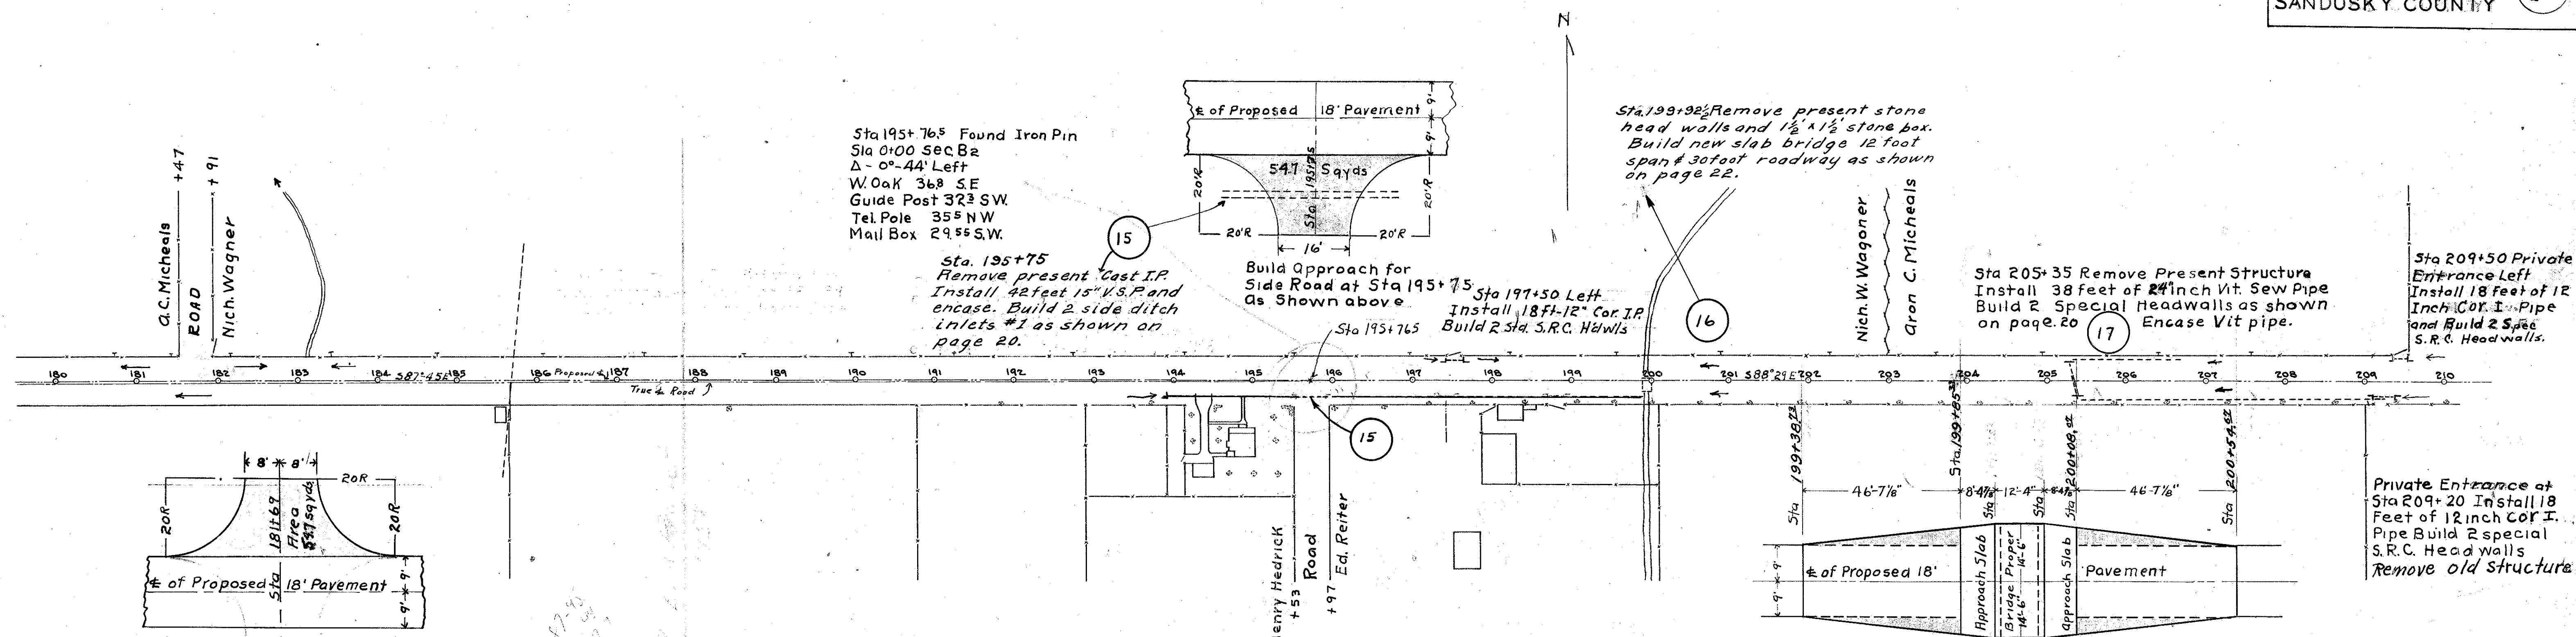 SANDUSKY COUNTY
N
+47
+91
A.C. Micheals
ROAD
Nich. Wagner
Sta 195+76.5 Found Iron Pin
Sta 0+00 Sec B2
Δ - 0°-44' Left
W. Oak 36.8 S.E
Guide Post 32.3 S.W.
Tel. Pole 35.5 N W
Mail Box 29.55 S.W.
Sta. 195+75
Remove present Cast I.P.
Install 42 feet 15" V.S.P. and
encase. Build 2 side ditch
inlets #1 as shown on
page 20.
15
℄ of Proposed 18' Pavement
9'
9'
54.7 Sqyds
Sta 195+75
20'R
20'R
20'R
20'R
16'
Build Approach for
Side Road at Sta 195+75
as Shown above
Sta 195+76.5
Sta 197+50 Left
Install 18ft-12" Cor. I.P.
Build 2 Std. S.R.C. Hdwls
Sta. 199+92½ Remove present stone
head walls and 1½' x 1½' stone box.
Build new slab bridge 12 foot
span & 30 foot roadway as shown
on page 22.
16
Nich. W. Wagoner
Aron C. Micheals
Sta 205+35 Remove Present Structure
Install 38 feet of 24" inch Vit. Sew Pipe
Build 2 Special Headwalls as shown
on page. 20 Encase Vit pipe.
17
Sta 209+50 Private
Entrance Left
Install 18 feet of 12
Inch Cor. I. Pipe
and Build 2 Spec
S.R.C. Headwalls.
180 181 182 183 184 S87°-45'E 185 186 Proposed ℄ 187 188 189 190 191 192 193 194 195 196 197 198 199 200 201 S88°29'E 202 203 204 205 206 207 208 209 210
True ℄ Road
15
8' 8'
20R
20R
20R
Sta 181+69
Area
54.7 sqyds
℄ of Proposed 18' Pavement
9'
9'
Henry Hedrick
+53
Road
+97
Ed. Reiter
Sta 199+38.73
Sta. 199+85.33
Sta
Sta
Sta 200+08.42
Sta 200+54.52
46'-7⅛" 8'-4⅞" 12'-4" 8'-4⅞" 46'-7⅛"
9'
9'
℄ of Proposed 18' Pavement
Approach Slab
Bridge Proper
14'-6" 14'-6"
Approach Slab
Private Entrance at
Sta 209+20 Install 18
Feet of 12 inch Cor I.
Pipe Build 2 special
S.R.C. Head walls
Remove old structure